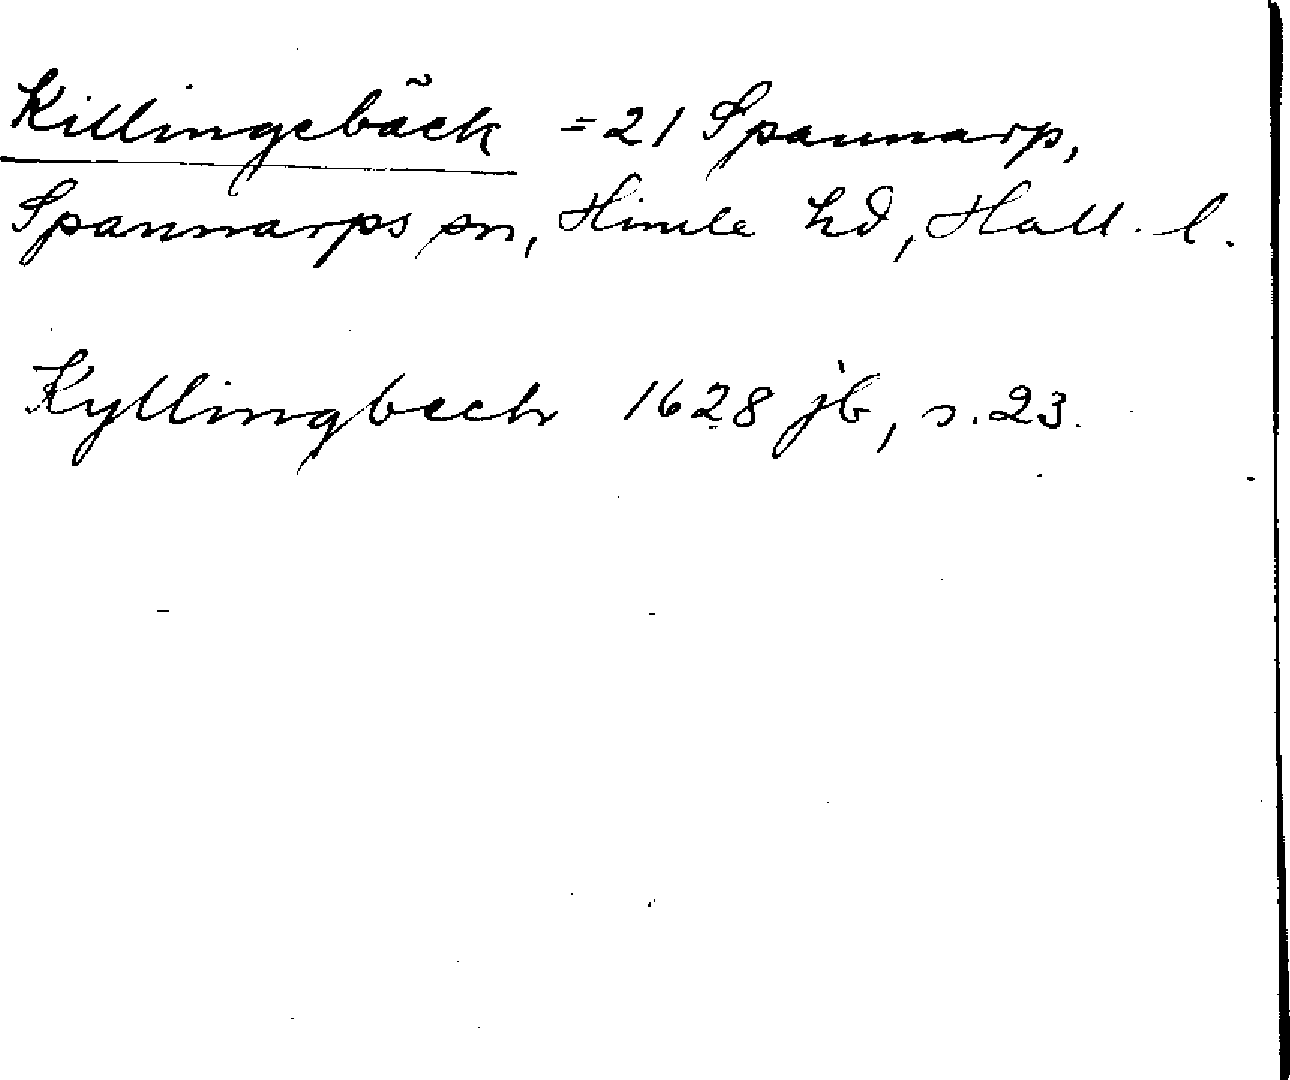 Killingebäck = 21 Spannarp,
Spannarps sn, Himle hd, Hall. l.
Kyllingbech 1628 jb, s. 23.